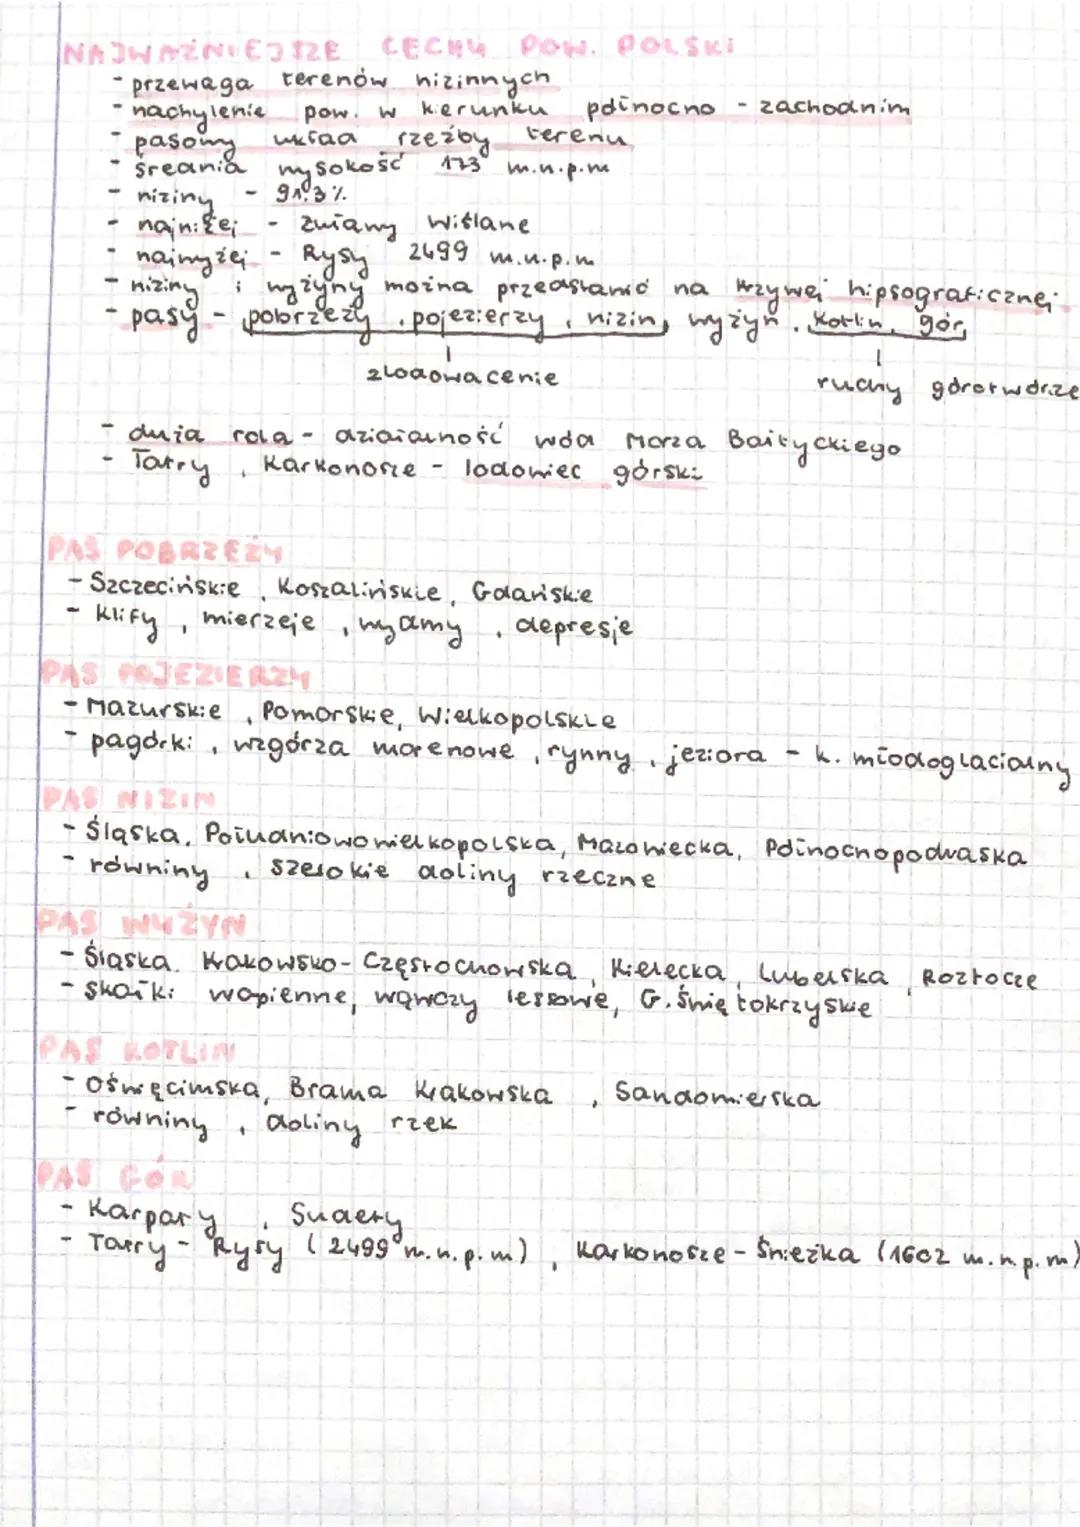 NAJWAŻNIEJSZE CECHY POW. POLSKI
- przewaga terenów nizinnych
- nachylenie pow. w kierunku północno - zachodnim
- pasowy układ rzeźby terenu
- średnia wysokość 173 m.n.p.m
- niziny - 91.3%
- najniżej - Żuławy Wiślane
- najwyżej - Rysy 2499 m.n.p.m
- niziny i wyżyny można przedstawić na krzywej hipsograficznej
- pasy - pobrzeży, pojezierzy, nizin, wyżyn, kotlin, gór
zlodowacenie ruchy górotwórcze
- duża rola - działalność wód Morza Bałtyckiego
- Tatry, Karkonosze - lodowiec górski
PAS POBRZEŻY
- Szczecińskie, Koszalińskie, Gdańskie
- klify, mierzeje, wydmy, depresje
PAS POJEZIERZY
- Mazurskie, Pomorskie, Wielkopolskie
- pagórki, wzgórza morenowe, rynny, jeziora - k. młodoglacialny
PAS NIZIN
- Śląska, Południowowielkopolska, Mazowiecka, Północnopodlaska
- równiny, szerokie doliny rzeczne
PAS WYŻYN
- Śląska, Krakowsko-Częstochowska, Kielecka, Lubelska, Roztocze
- skałki wapienne, wąwozy lessowe, G. Świętokrzyskie
PAS KOTLIN
- Oświęcimska, Brama Krakowska, Sandomierska
- równiny, doliny rzek
PAS GÓR
- Karpaty, Sudety
- Tatry - Rysy (2499 m.n.p.m), Karkonosze - Śnieżka (1602 m.n.p.m)